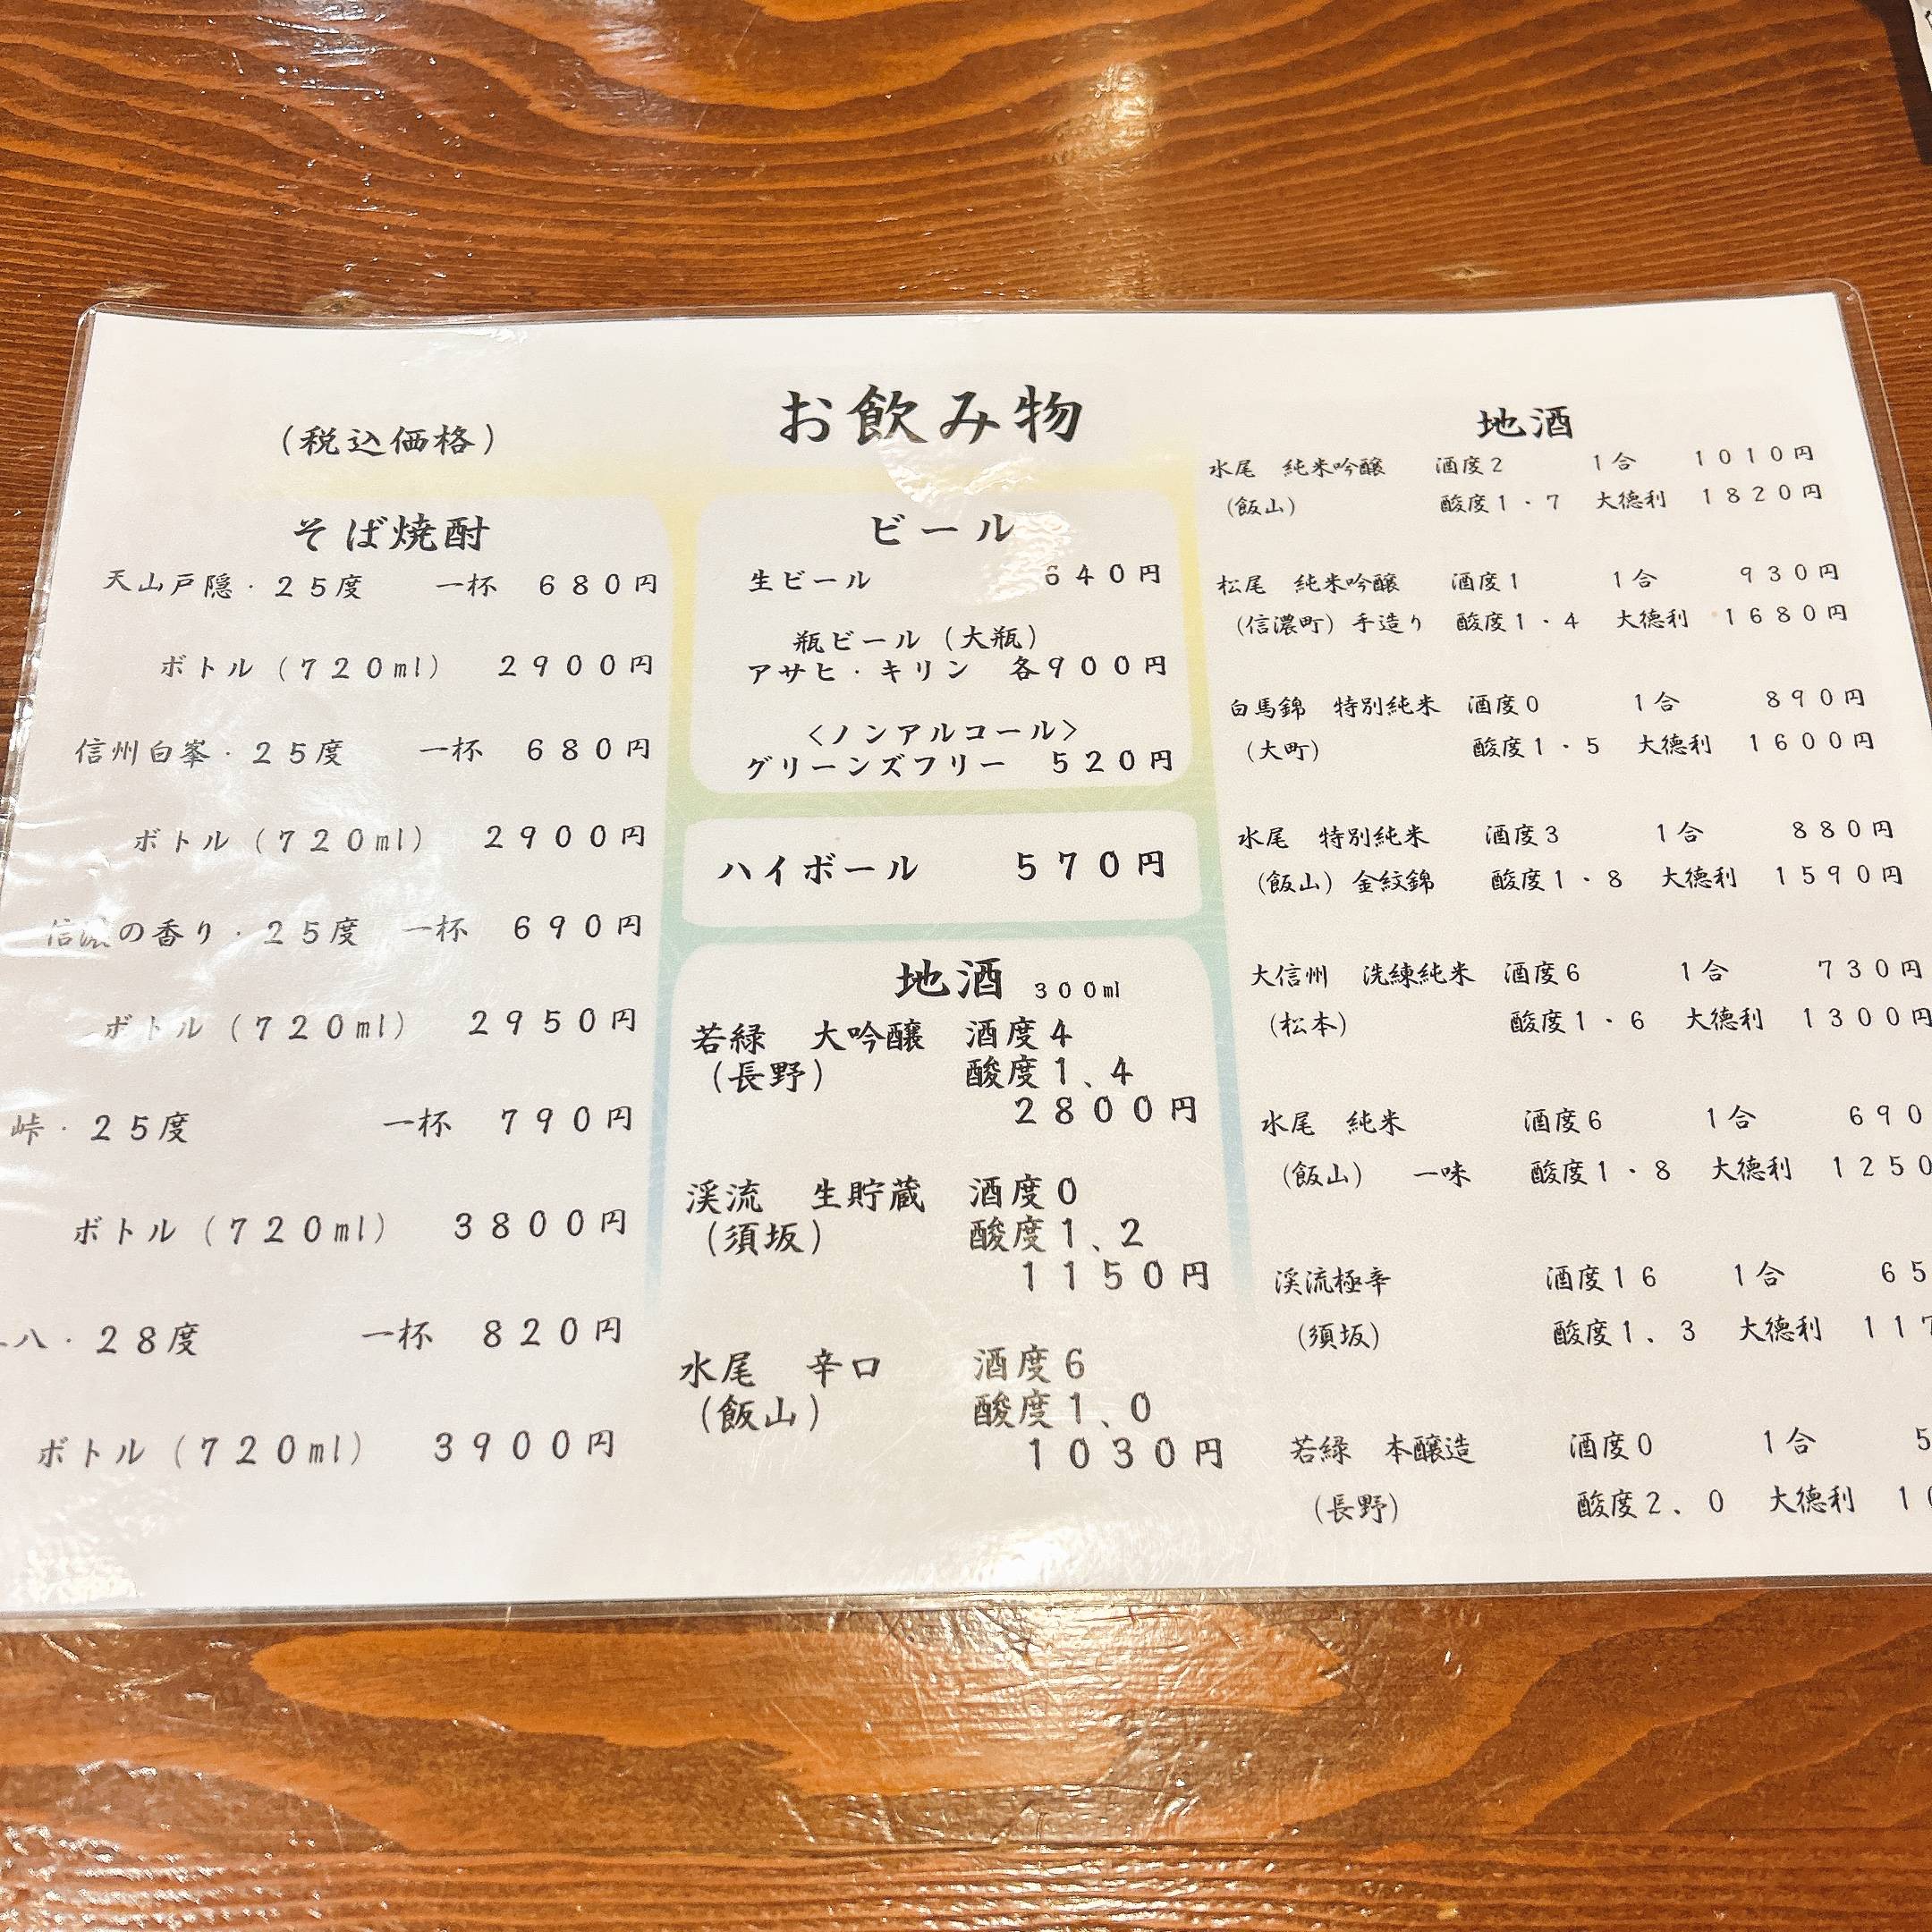 お飲み物
(税込価格)
そば焼酎
天山戸隠・25度 一杯 680円
ボトル(720ml) 2900円
信州白峯・25度 一杯 680円
ボトル(720ml) 2900円
信濃の香り・25度 一杯 690円
ボトル(720ml) 2950円
峠・25度 一杯 790円
ボトル(720ml) 3800円
八・28度 一杯 820円
ボトル(720ml) 3900円
ビール
生ビール 640円
瓶ビール(大瓶)
アサヒ・キリン 各900円
<ノンアルコール>
グリーンズフリー 520円
ハイボール 570円
地酒 300ml
若緑 大吟醸 酒度4
(長野) 酸度1、4
2800円
渓流 生貯蔵 酒度0
(須坂) 酸度1、2
1150円
水尾 辛口 酒度6
(飯山) 酸度1、0
1030円
地酒
水尾 純米吟醸 酒度2 1合 1010円
(飯山) 酸度1・7 大徳利 1820円
松尾 純米吟醸 酒度1 1合 930円
(信濃町)手造り 酸度1・4 大徳利 1680円
白馬錦 特別純米 酒度0 1合 890円
(大町) 酸度1・5 大徳利 1600円
水尾 特別純米 酒度3 1合 880円
(飯山)金紋錦 酸度1・8 大徳利 1590円
大信州 洗練純米 酒度6 1合 730円
(松本) 酸度1・6 大徳利 1300円
水尾 純米 酒度6 1合 690
(飯山) 一味 酸度1・8 大徳利 1250
渓流極辛 酒度16 1合 65
(須坂) 酸度1、3 大徳利 117
若緑 本醸造 酒度0 1合 5
(長野) 酸度2、0 大徳利 10